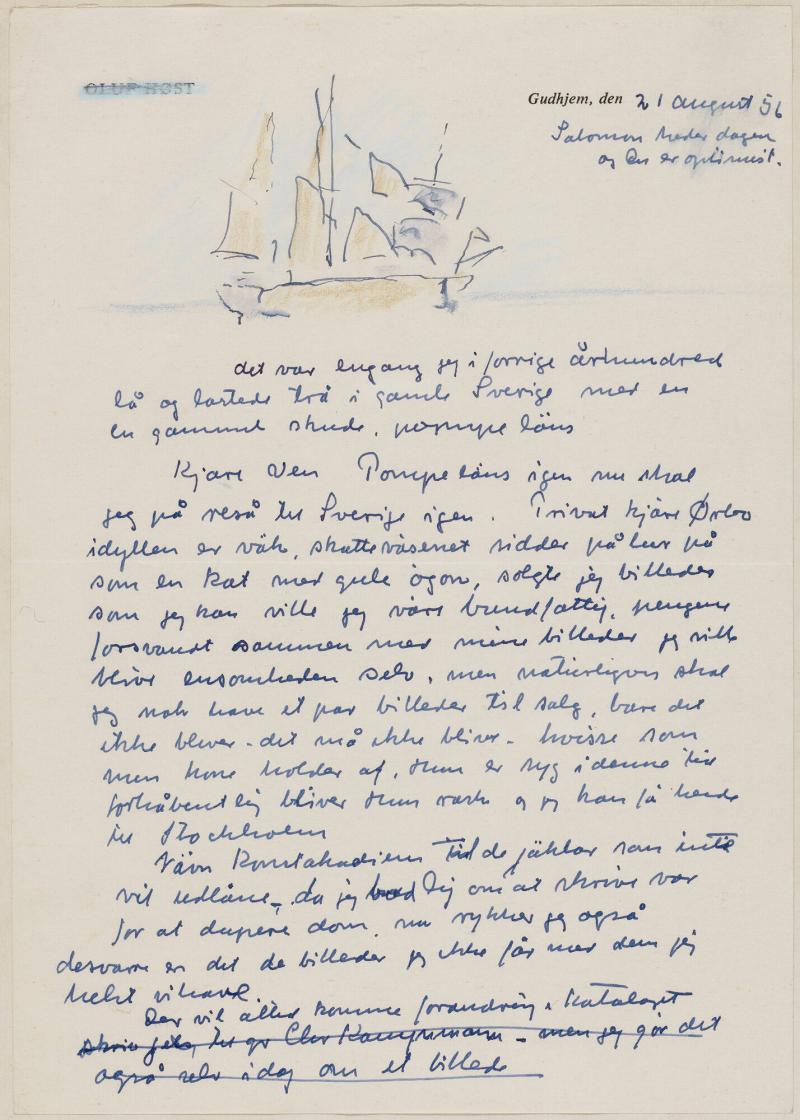 OLUF HØST
Gudhjem, den 21 august 56
Salomon heder dagen
og En er optimist.
det var engang jeg i forrige århundred
lå og lastede trä i gamle Sverige med en
en gammel skude, pompe läns
Kjäre Ven Pompe läns igen nu skal
jeg på reså til Sverige igen. Privat kjäre
idyllen er väk, skattevåsenet sidder på lur på
som en kat med gule ögon, solgte jeg billeder
som jeg kan ville jeg väre bundfattig, pengene
forsvandt sammen med mine billeder jeg ville
blive ensomheden selv, men naturligvis skal
jeg nok have et par billeder til salg, bare det
ikke bliver - det må ikke blive - hvisse som
men kone holder af, hun er syg i denne tid
forhåbentlig bliver hun rask og jeg kan få hende
til Stockholm
Nävn Konstakadiem til de jäklar som inte
vil udlåne, da jeg bad dig om at skrive var
for at dupere dom, nu rykker jeg også
desvarre er det de billeder jeg ikke får med dem jeg
helst vil have.
Der vil aller komme forandring i Kataloget
skriv til gr Chr Kampmann - men jeg gör det
også selv idag om et billede